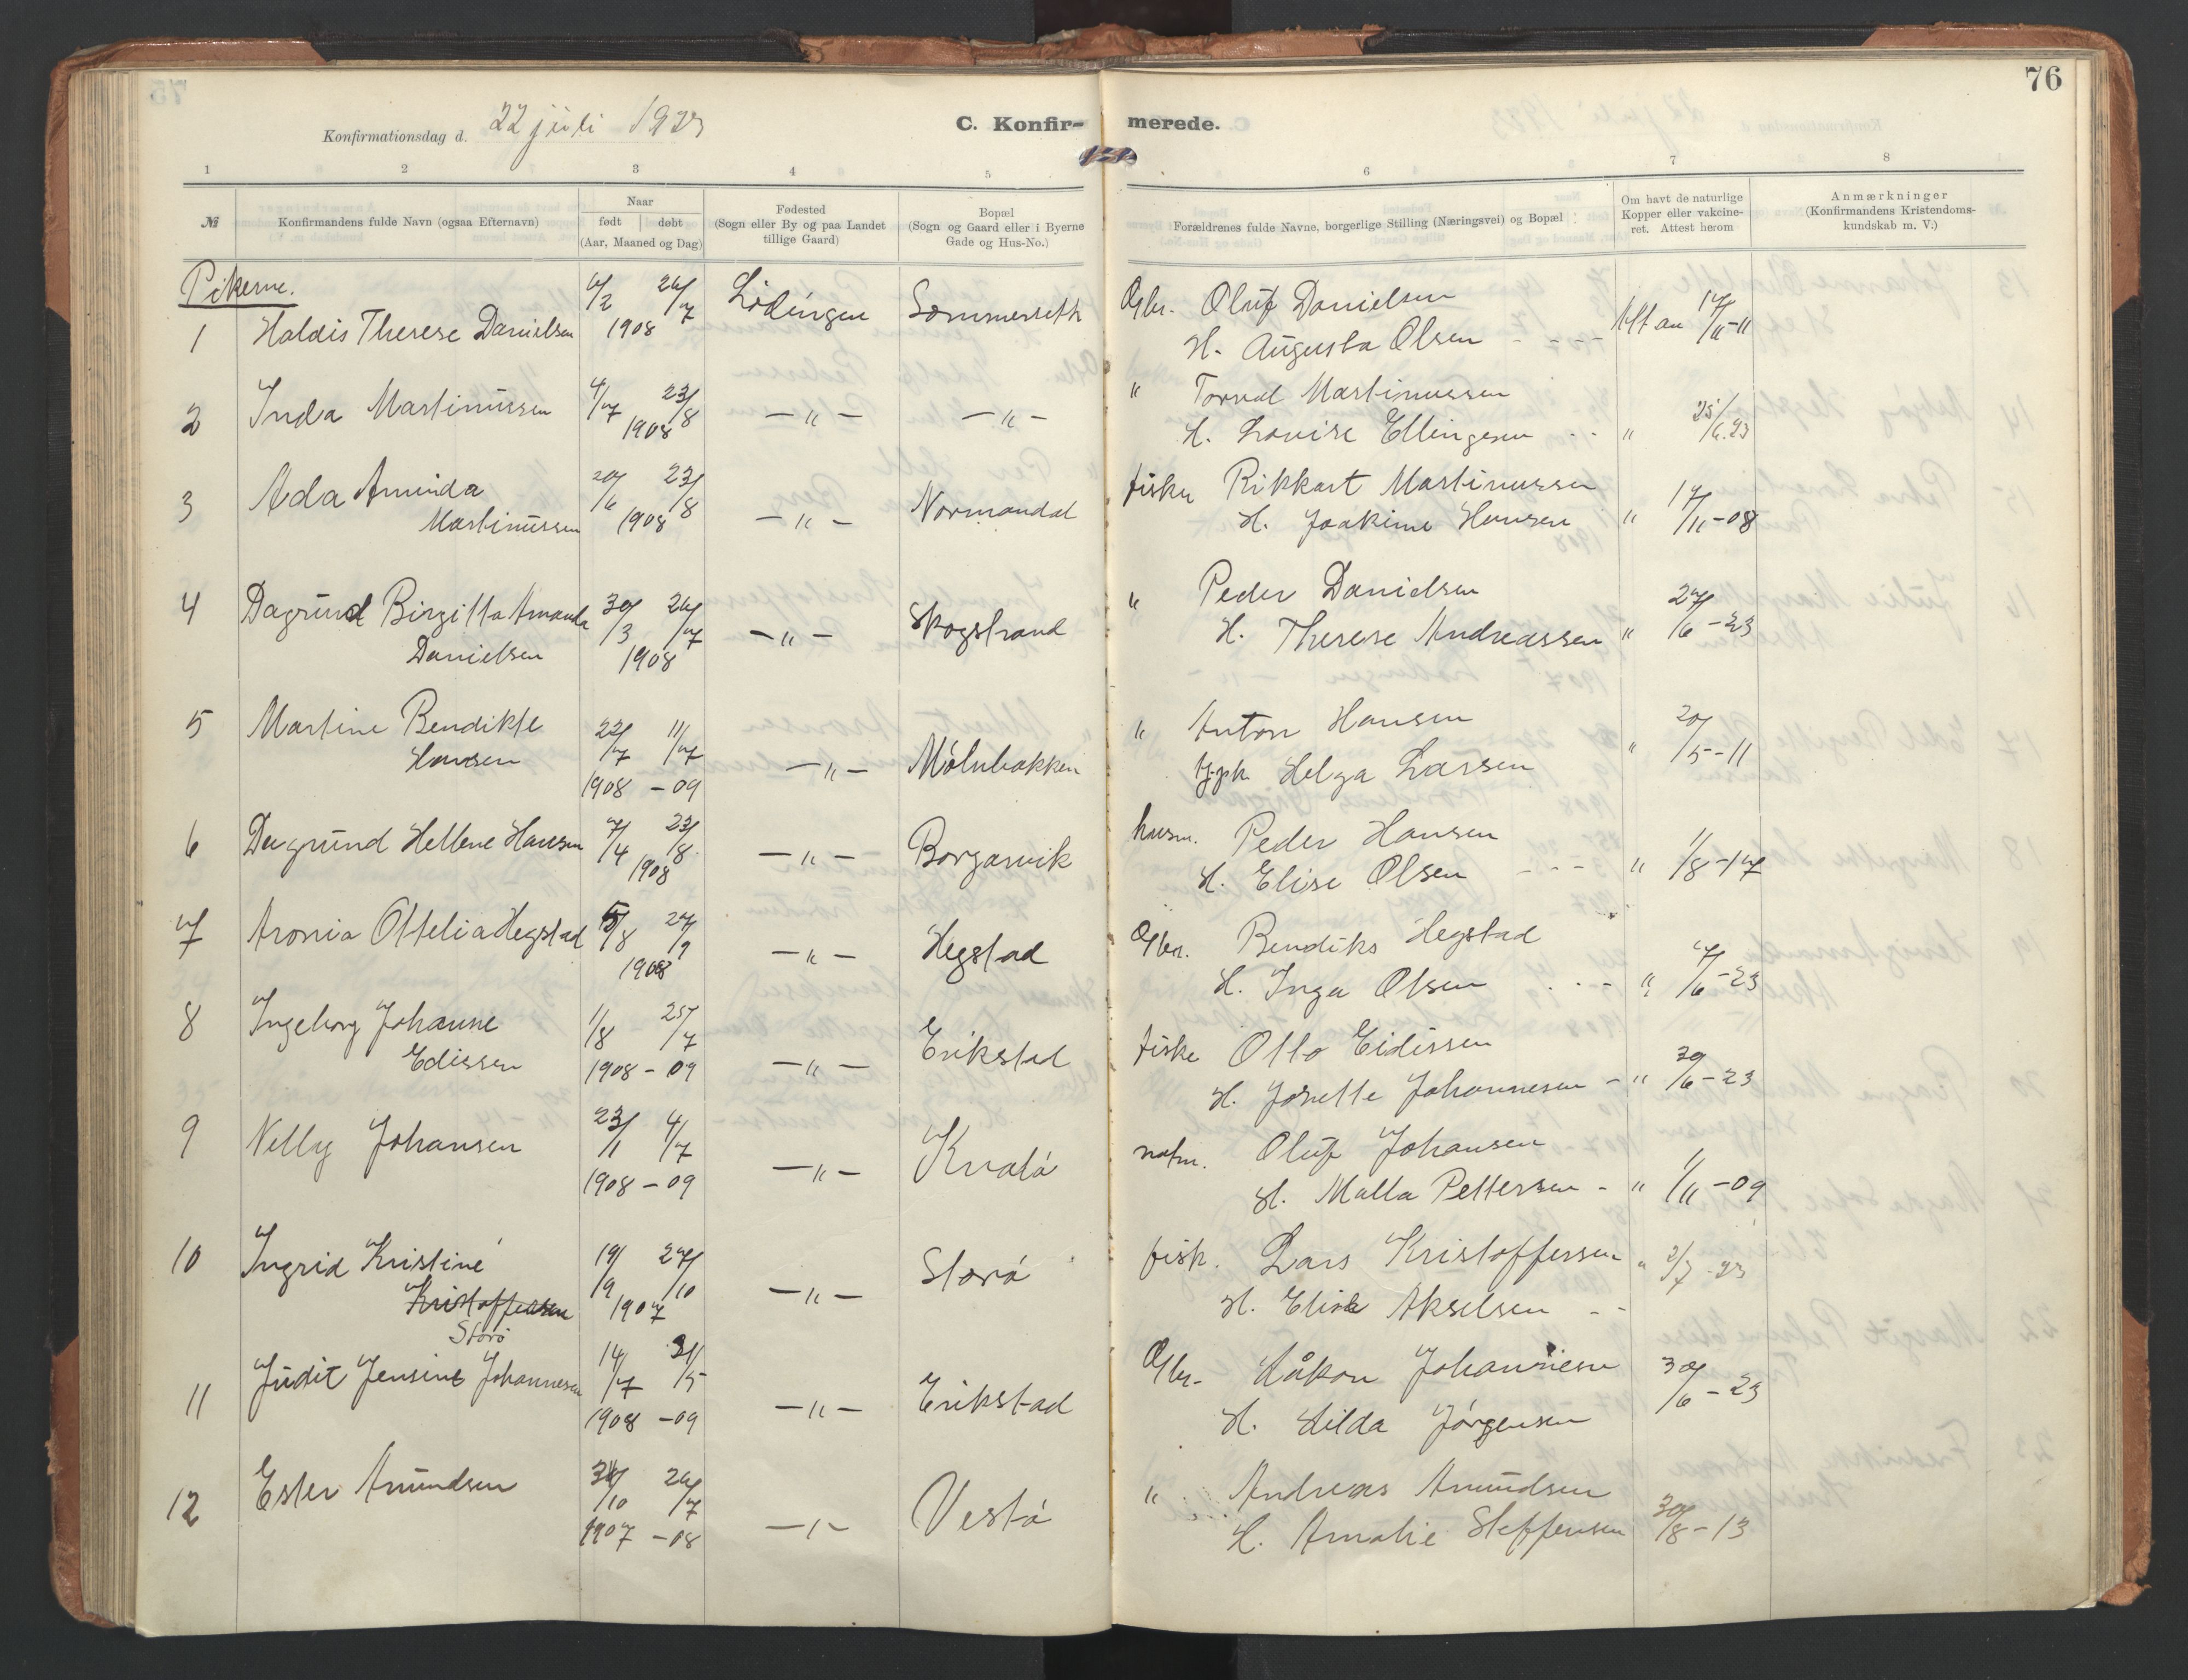 76
Konfirmationsdag d. 22 juli 1923
C. Konfir- merede.
1 2 3 4 5 6 7 8
№
Konfirmandens fulde Navn (ogsaa Efternavn)
Naar
født døbt
(Aar, Maaned og Dag)
Fødested
(Sogn eller By og paa Landet
tillige Gaard)
Bopæl
(Sogn og Gaard eller i Byerne
Gade og Hus-No.)
Forældrenes fulde Navne, borgerlige Stilling (Næringsvei) og Bopæl
Om havt de naturlige
Kopper eller vakcine-
ret. Attest herom
Anmærkninger
(Konfirmandens Kristendoms-
kundskab m. V.)
Pikerne.
1 Haldis Therese Danielsen 1908 Lødingen Sommerseth
Gbr. Oluf Danielsen
H. Augusta Olsen - - - - Att av 17/11-11
2 Inda Martinussen 4/7 23/8 1908 — " — — " —
" Torvald Martinussen
H. Lovise Ellingsen - - " 25/6.23
3 Ada Aminda
Martinussen 20/6 23/8 1908 — " — Normandal
fisker Rikkart Martinussen
H. Joakime Hansen " 17/11-08
4 Dagrund Birgitta Amanda
Danielsen 30/3 26/7 1908 — " — Skogstrand
" Peder Danielsen
H. Therese Andreassen " 27/6-23
5 Martine Bendikte
Hansen 22/7 11/7 1908 - 09 — " — Mølnbakken
" Anton Hansen
Helga Larsen " 20/5-11
6 Dagrund Hellene Hansen 7/4 23/8 1908 — " — Borgarvik
husm. Peder Hansen
H. Elise Olsen - - - " 1/8-17
7 Aronia Ottelia Hegstad 5/8 27/9 1908 — " — Hegstad
Gbr. Bendiks Hegstad
H. Inga Olsen . - - " 7/6-23
8 Ingeborg Johanne
Edissen 1/8 25/7 1908 - 09 — " — Erikstad
fiske Otto Eidissen
H. Josette Johannesen - " 30/6-23
9 Nelly Johansen 23/11 4/7 1908 - 09 — " — Kvalø
Oluf Johansen
H. Malla Pettersen - " 1/11-09
10 Ingrid Kristine
Kristoffersen
Storø 19/9 27/10 1907 — " — Storø
fisk. Lars Kristoffersen " 2/7-23
H. Elise Akselsen - -
11 Judit Jensine Johannesen 14/7 31/5 1908 - 09 — " — Erikstad
Gbr. Håkon Johannesen
H. Hilda Jørgensen 30/6-23
12 Ester Amundsen 26/7 1907 - 08 — " — Vestø
" Andreas Amundsen
H. Amalie Steffensen 30/8-13